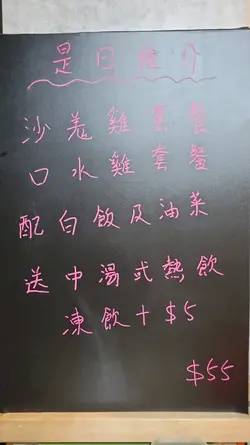 是日推介
沙羗雞套餐
口水雞套餐
配白飯及油菜
送中湯式熱飲
凍飲+$5
$55